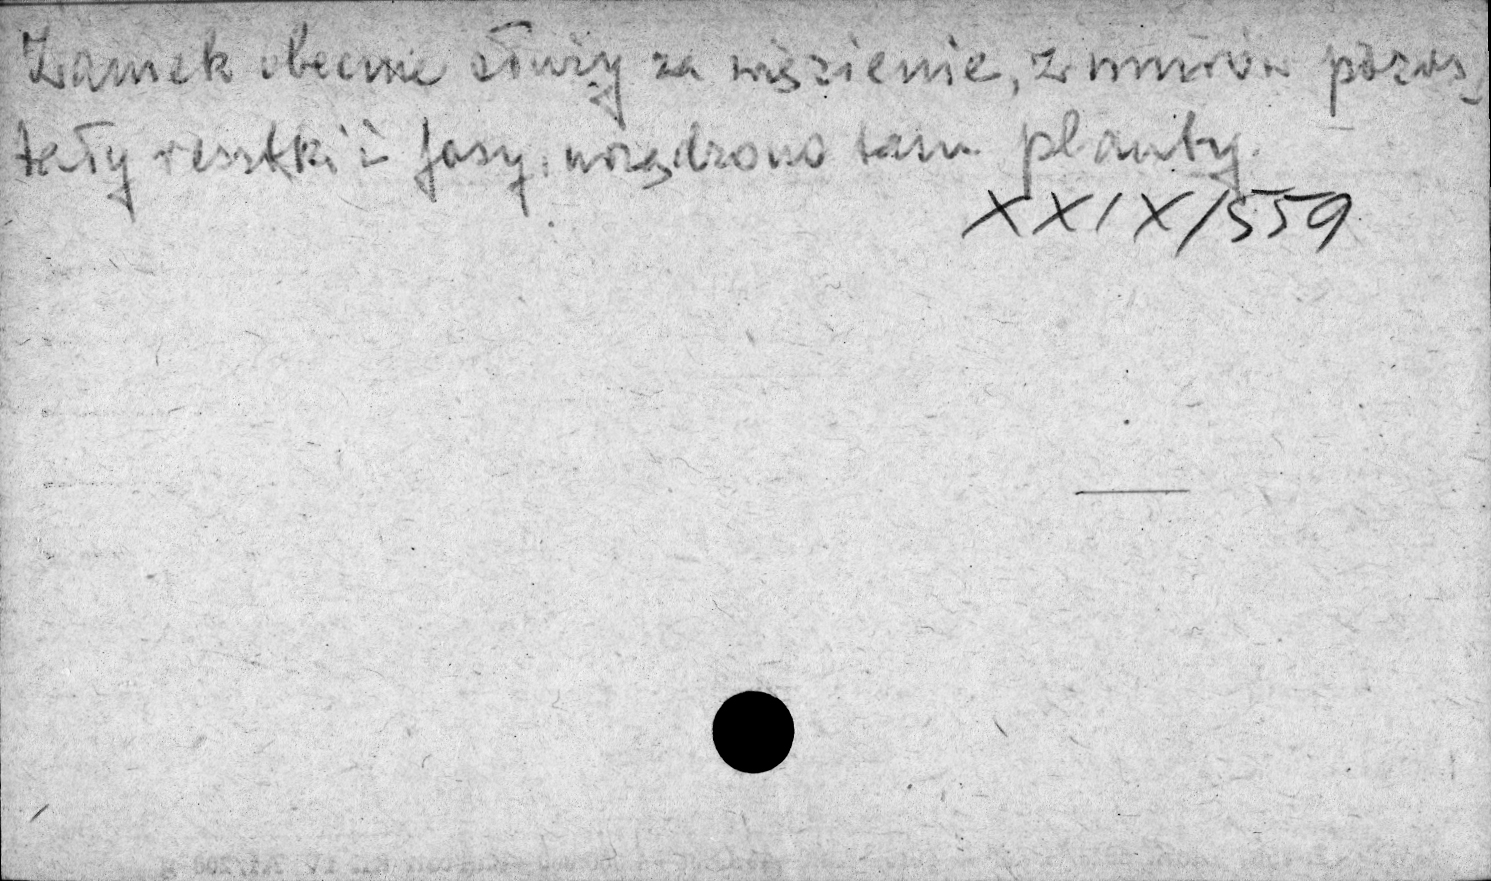 Zamek obecnie służy za więzienie, z murów pozos-
tały resztki i fosy, urządzono tam planty.
XXIX/559